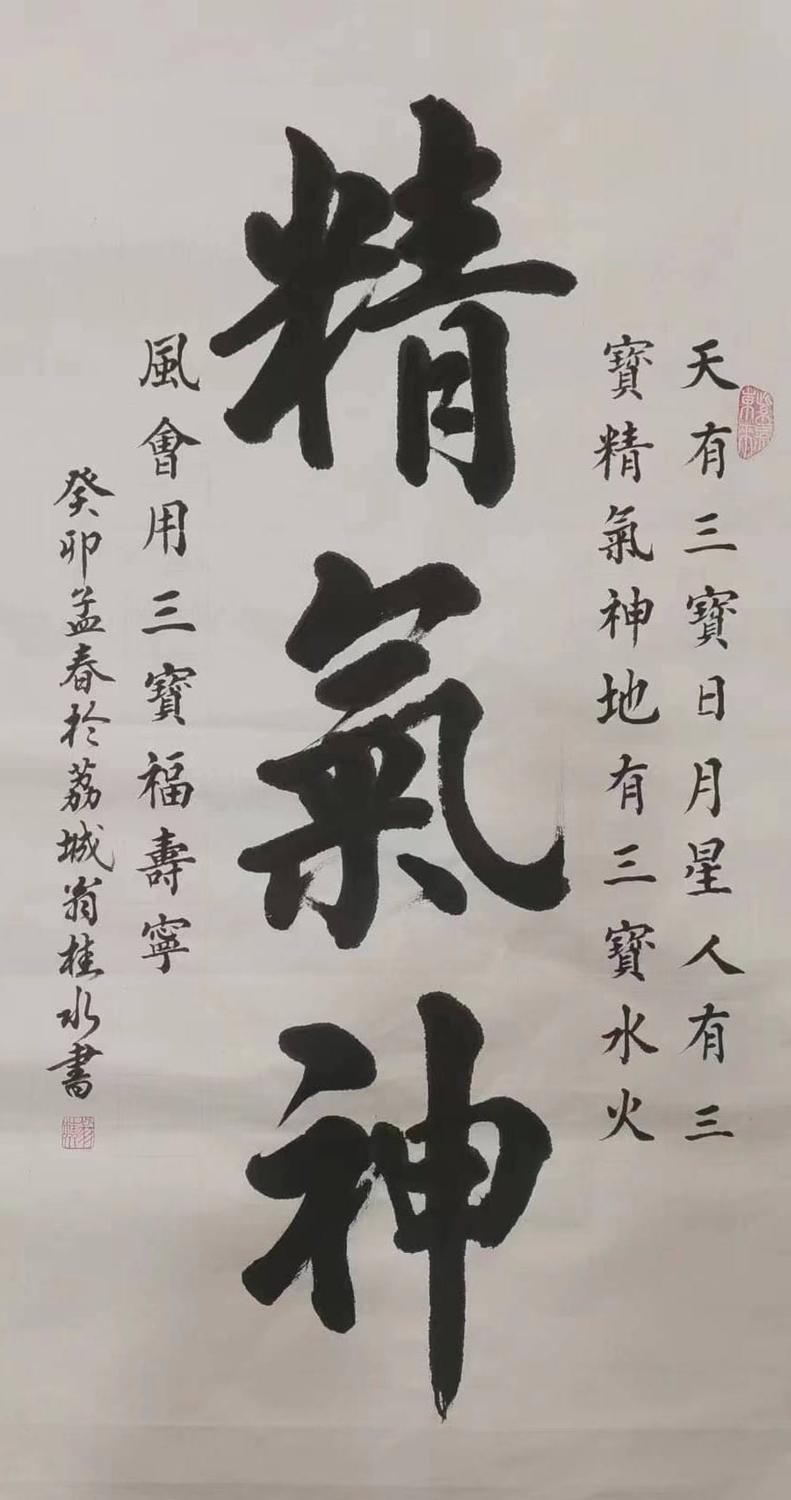 天有三寶日月星人有三
寶精氣神地有三寶水火
精氣神
風會用三寶福壽寧
癸卯孟春於荔城翁桂水書